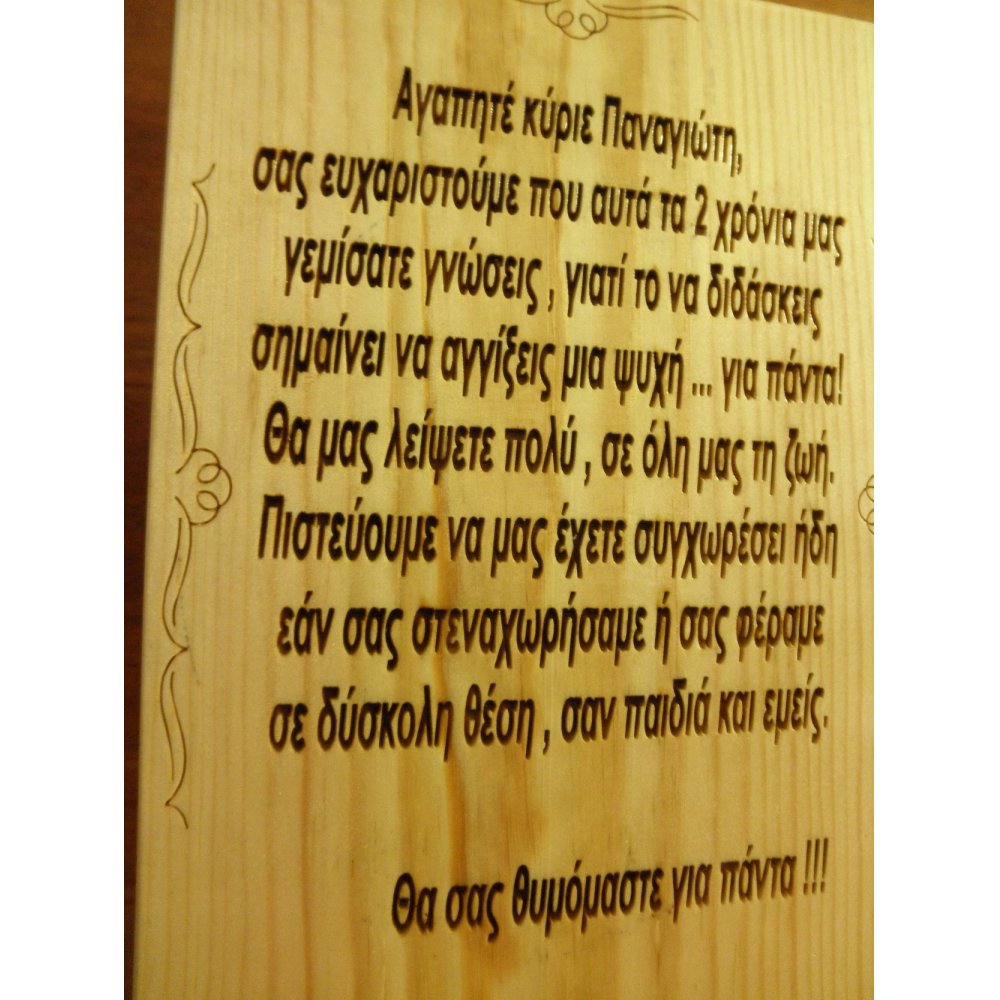 Αγαπητέ κύριε Παναγιώτη,
σας ευχαριστούμε που αυτά τα 2 χρόνια μας
γεμίσατε γνώσεις , γιατί το να διδάσκεις
σημαίνει να αγγίξεις μια ψυχή ... για πάντα!
Θα μας λείψετε πολύ , σε όλη μας τη ζωή.
Πιστεύουμε να μας έχετε συγχωρέσει ήδη
εάν σας στεναχωρήσαμε ή σας φέραμε
σε δύσκολη θέση , σαν παιδιά και εμείς.
Θα σας θυμόμαστε για πάντα !!!